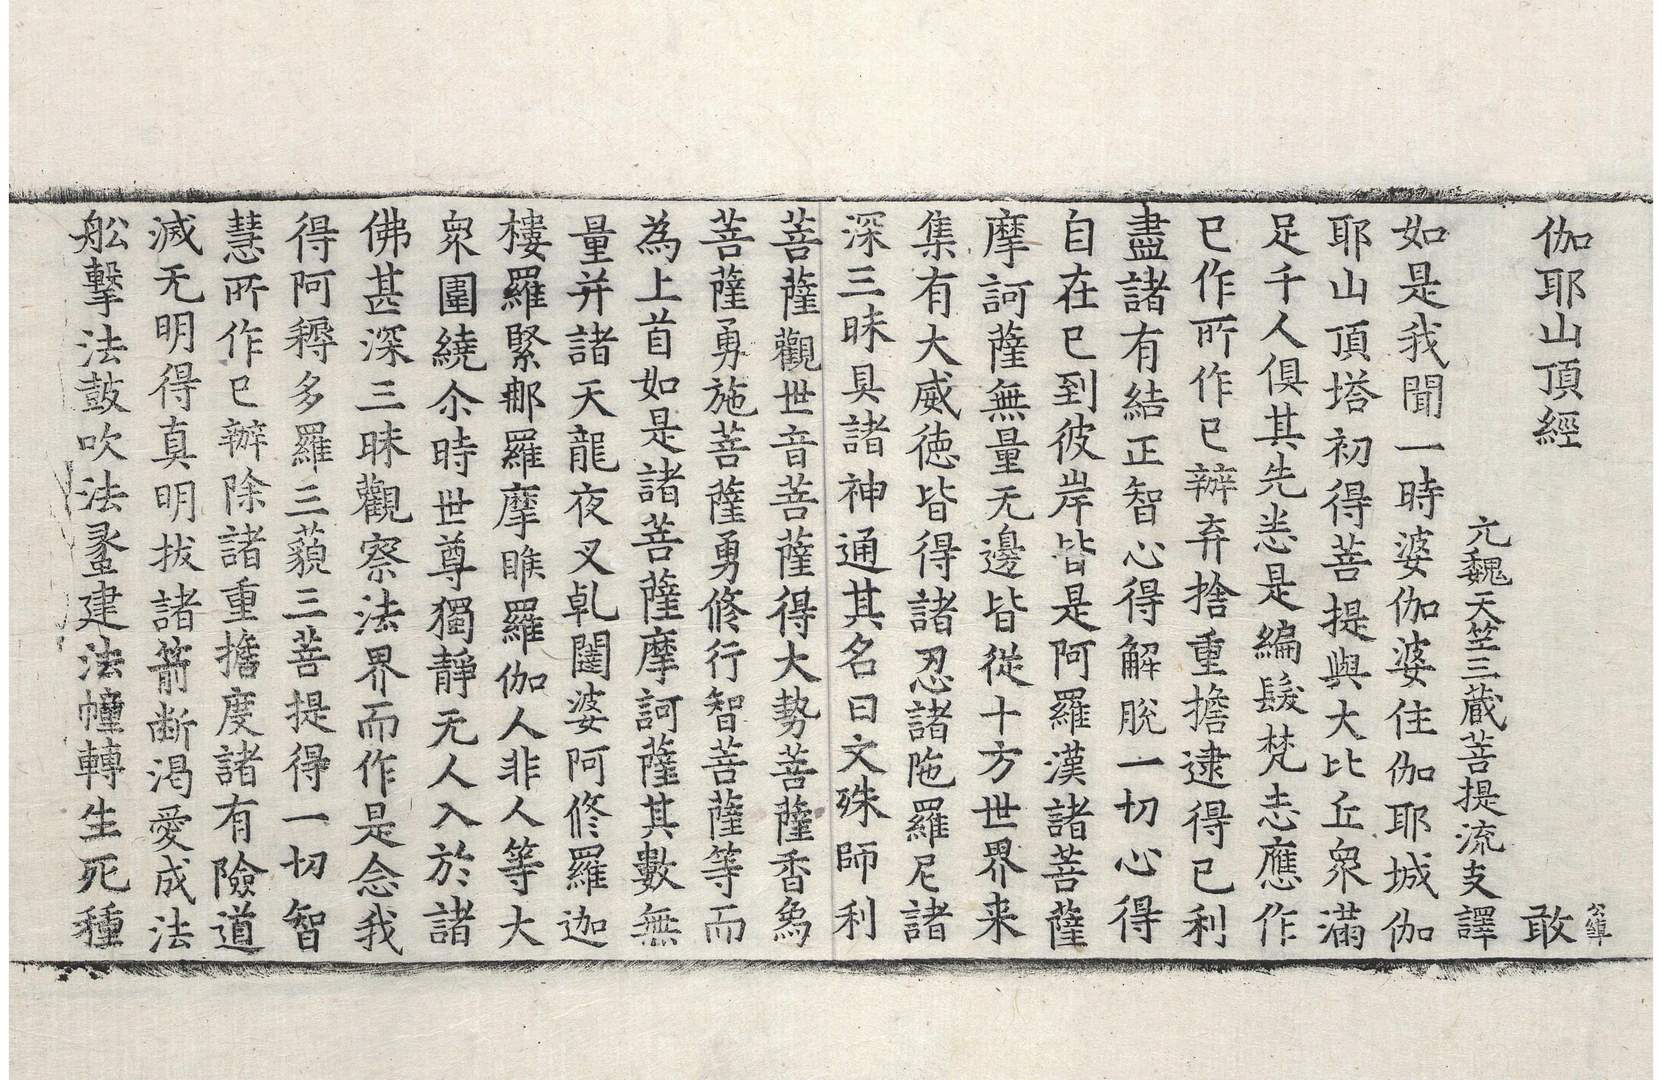 伽耶山頂經 敢
元魏天竺三藏菩提流支譯
如是我聞一時婆伽婆住伽耶城伽
耶山頂塔初得菩提與大比丘衆滿
足千人俱其先恙是編髮梵志應作
已作所作已辦弃捨重擔逮得已利
盡諸有結正智心得解脫一切心得
自在已到彼岸皆是阿羅漢諸菩薩
摩訶薩無量无邊皆從十方世界来
集有大威徳皆得諸忍諸陁羅尼諸
深三昧具諸神通其名曰文殊師利
菩薩觀世音菩薩得大勢菩薩香爲
菩薩勇施菩薩勇修行智菩薩等而
為上首如是諸菩薩摩訶薩其數無
量并諸天龍夜叉乹闥婆阿修羅迦
樓羅緊那羅摩睺羅伽人非人等大
衆圍繞尒時世尊獨靜无人入於諸
佛甚深三昧觀察法界而作是念我
得阿耨多羅三藐三菩提得一切智
慧所作已辦除諸重擔度諸有險道
滅无明得真明拔諸箭断渴愛成法
舩擊法鼓吹法䗍建法幢轉生死種